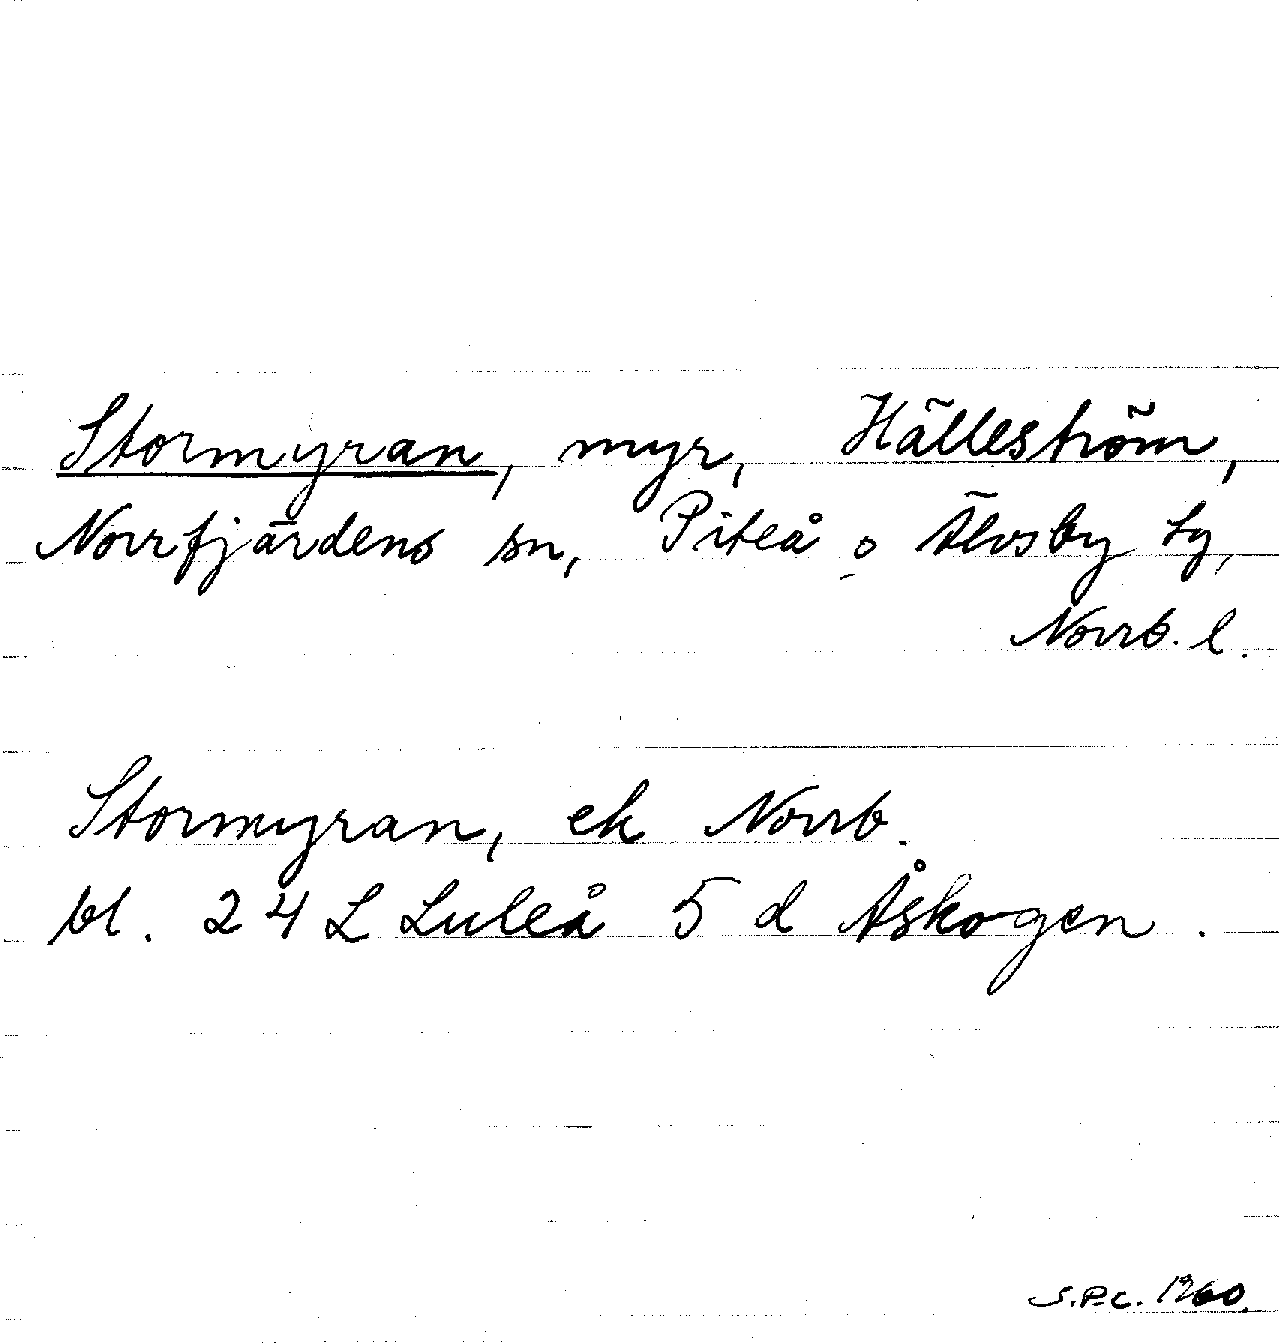 Stormyran, myr, Hälleström,
Norrfjärdens sn, Piteå o Älvsby tg,
Norrb. l.
Stormyran, ek Norrb.
bl. 24 L Luleå 5 d Åskogen.
S.P.C. 1960.